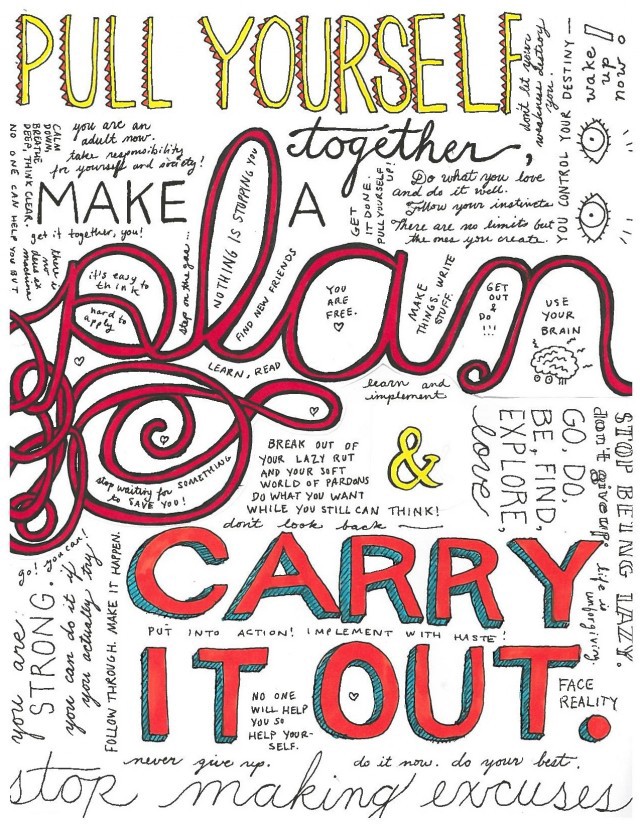 PULL YOURSELF
together,
don't let your
weakness destroy
you.
YOU CONTROL YOUR DESTINY —
wake
up
now!
CALM
DOWN,
BREATHE
DEEP, THINK CLEAR.
NO ONE CAN HELP YOU BUT
you are an
adult now.
take responsibility
for yourself and society!
MAKE A
get it together, you!
there is
no
deus ex
machina
GET
IT DONE.
PULL YOURSELF
UP!
Do what you love
and do it well.
Follow your instincts
There are no limits but
the ones you create.
plan
it's easy to
think
hard to
apply
step on the gas...
NOTHING IS STOPPING YOU
FIND NEW FRIENDS
LEARN, READ
YOU
ARE
FREE.
MAKE
THINGS. WRITE
STUFF.
GET
OUT
&
DO
!!!
USE
YOUR
BRAIN
learn and
implement
stop waiting for SOMETHING
to SAVE YOU!
BREAK OUT OF
YOUR LAZY RUT
AND YOUR SOFT
WORLD OF PARDONS
DO WHAT YOU WANT
WHILE YOU STILL CAN THINK!
don't look back
&
GO, DO,
BE, FIND,
EXPLORE,
love
STOP BEING LAZY.
don't give up. life is unforgiving.
go! you can!
you are
STRONG.
you can do it if
you actually try
FOLLOW THROUGH. MAKE IT HAPPEN.
CARRY
PUT INTO ACTION! IMPLEMENT WITH HASTE!
IT OUT.
NO ONE
WILL HELP
YOU SO
HELP YOUR-
SELF.
FACE
REALITY
never give up.
do it now. do your best.
stop making excuses